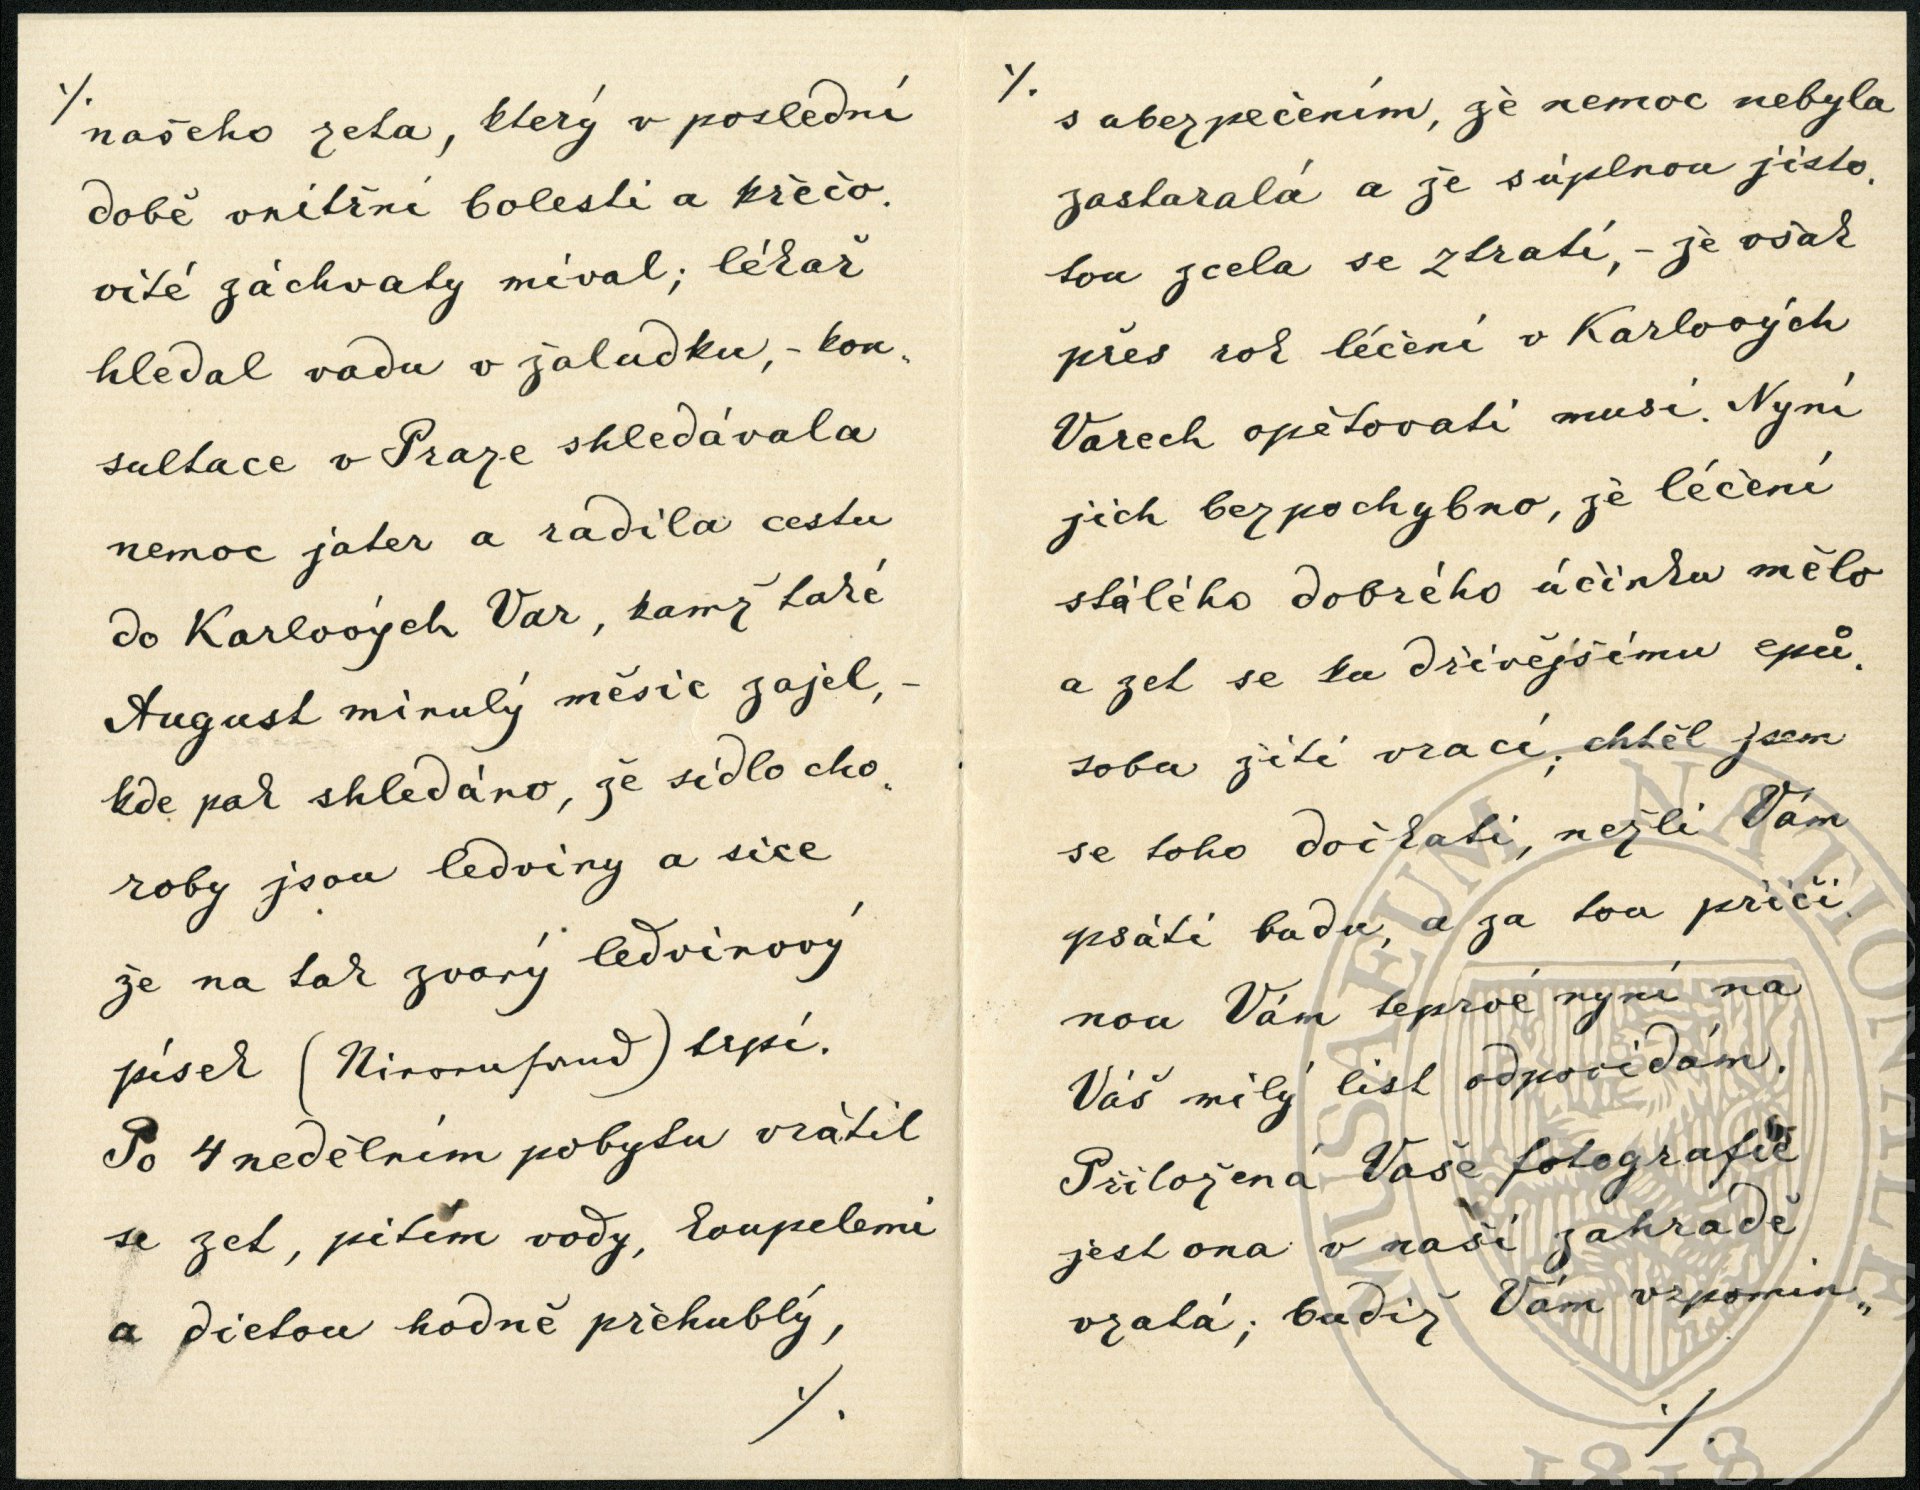 ·/.
našeho zeta, který v poslední
době vnitřní bolesti a křečo.
vité záchvaty míval; lékař
hledal vadu v žaludku, - kon„
sultace v Praze shledávala
nemoc jater a radila cestu
do Karlových Var, kamž také
August minulý měsíc zajel, -
kde pak shledáno, že sídlo cho„
roby jsou ledviny a sice
že na tak zvaný ledvinový
písek (Nierensand) trpí.
Po 4 nedělním pobytu vrátil
se zet, pitím vody, koupelemi
a dietou hodně přehublý,
·/.
·/.
s ubezpečením, že nemoc nebyla
zastaralá a že s úplnou jisto.
tou zcela se ztratí, - že však
přes rok léčení v Karlových
Varech opětovati musí. Nyní
jich bezpochybno, že léčení
stálého dobrého účinku mělo
a zet se ku dřívějšímu spů.
sobu žití vrací; chtěl jsem
se toho dočkati, nežli Vám
psáti budu, a za tou příči.
nou Vám teprvé nyní na
Váš milý list odpovídám.
Přiložená Vaše fotografie
jest ona v naší zahrádě
vzatá; budiž Vám vzpomín„
·/.
MUSAEUM NATIONALE
1818